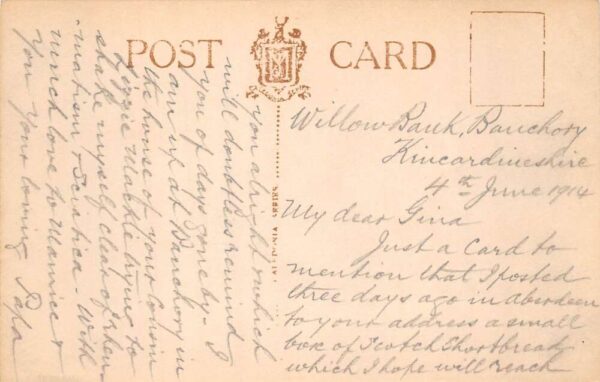 POST CARD
Willow Bank, Banchory
Kincardineshire
4th June 1914
My dear Gina
Just a Card to
mention that I posted
three days ago in aberdeen
to your address a small
box of Scotch Shortbread
which I hope will reach
you alright & which
will doubtless remind
you of days gone by. I
am up at Banchory in
the house of your Cousin
Lizzie trying to
shake myself clear of Rheu-
matism & Sciatica. With
much love to Maurice &
you Your loving Papa
SERIES